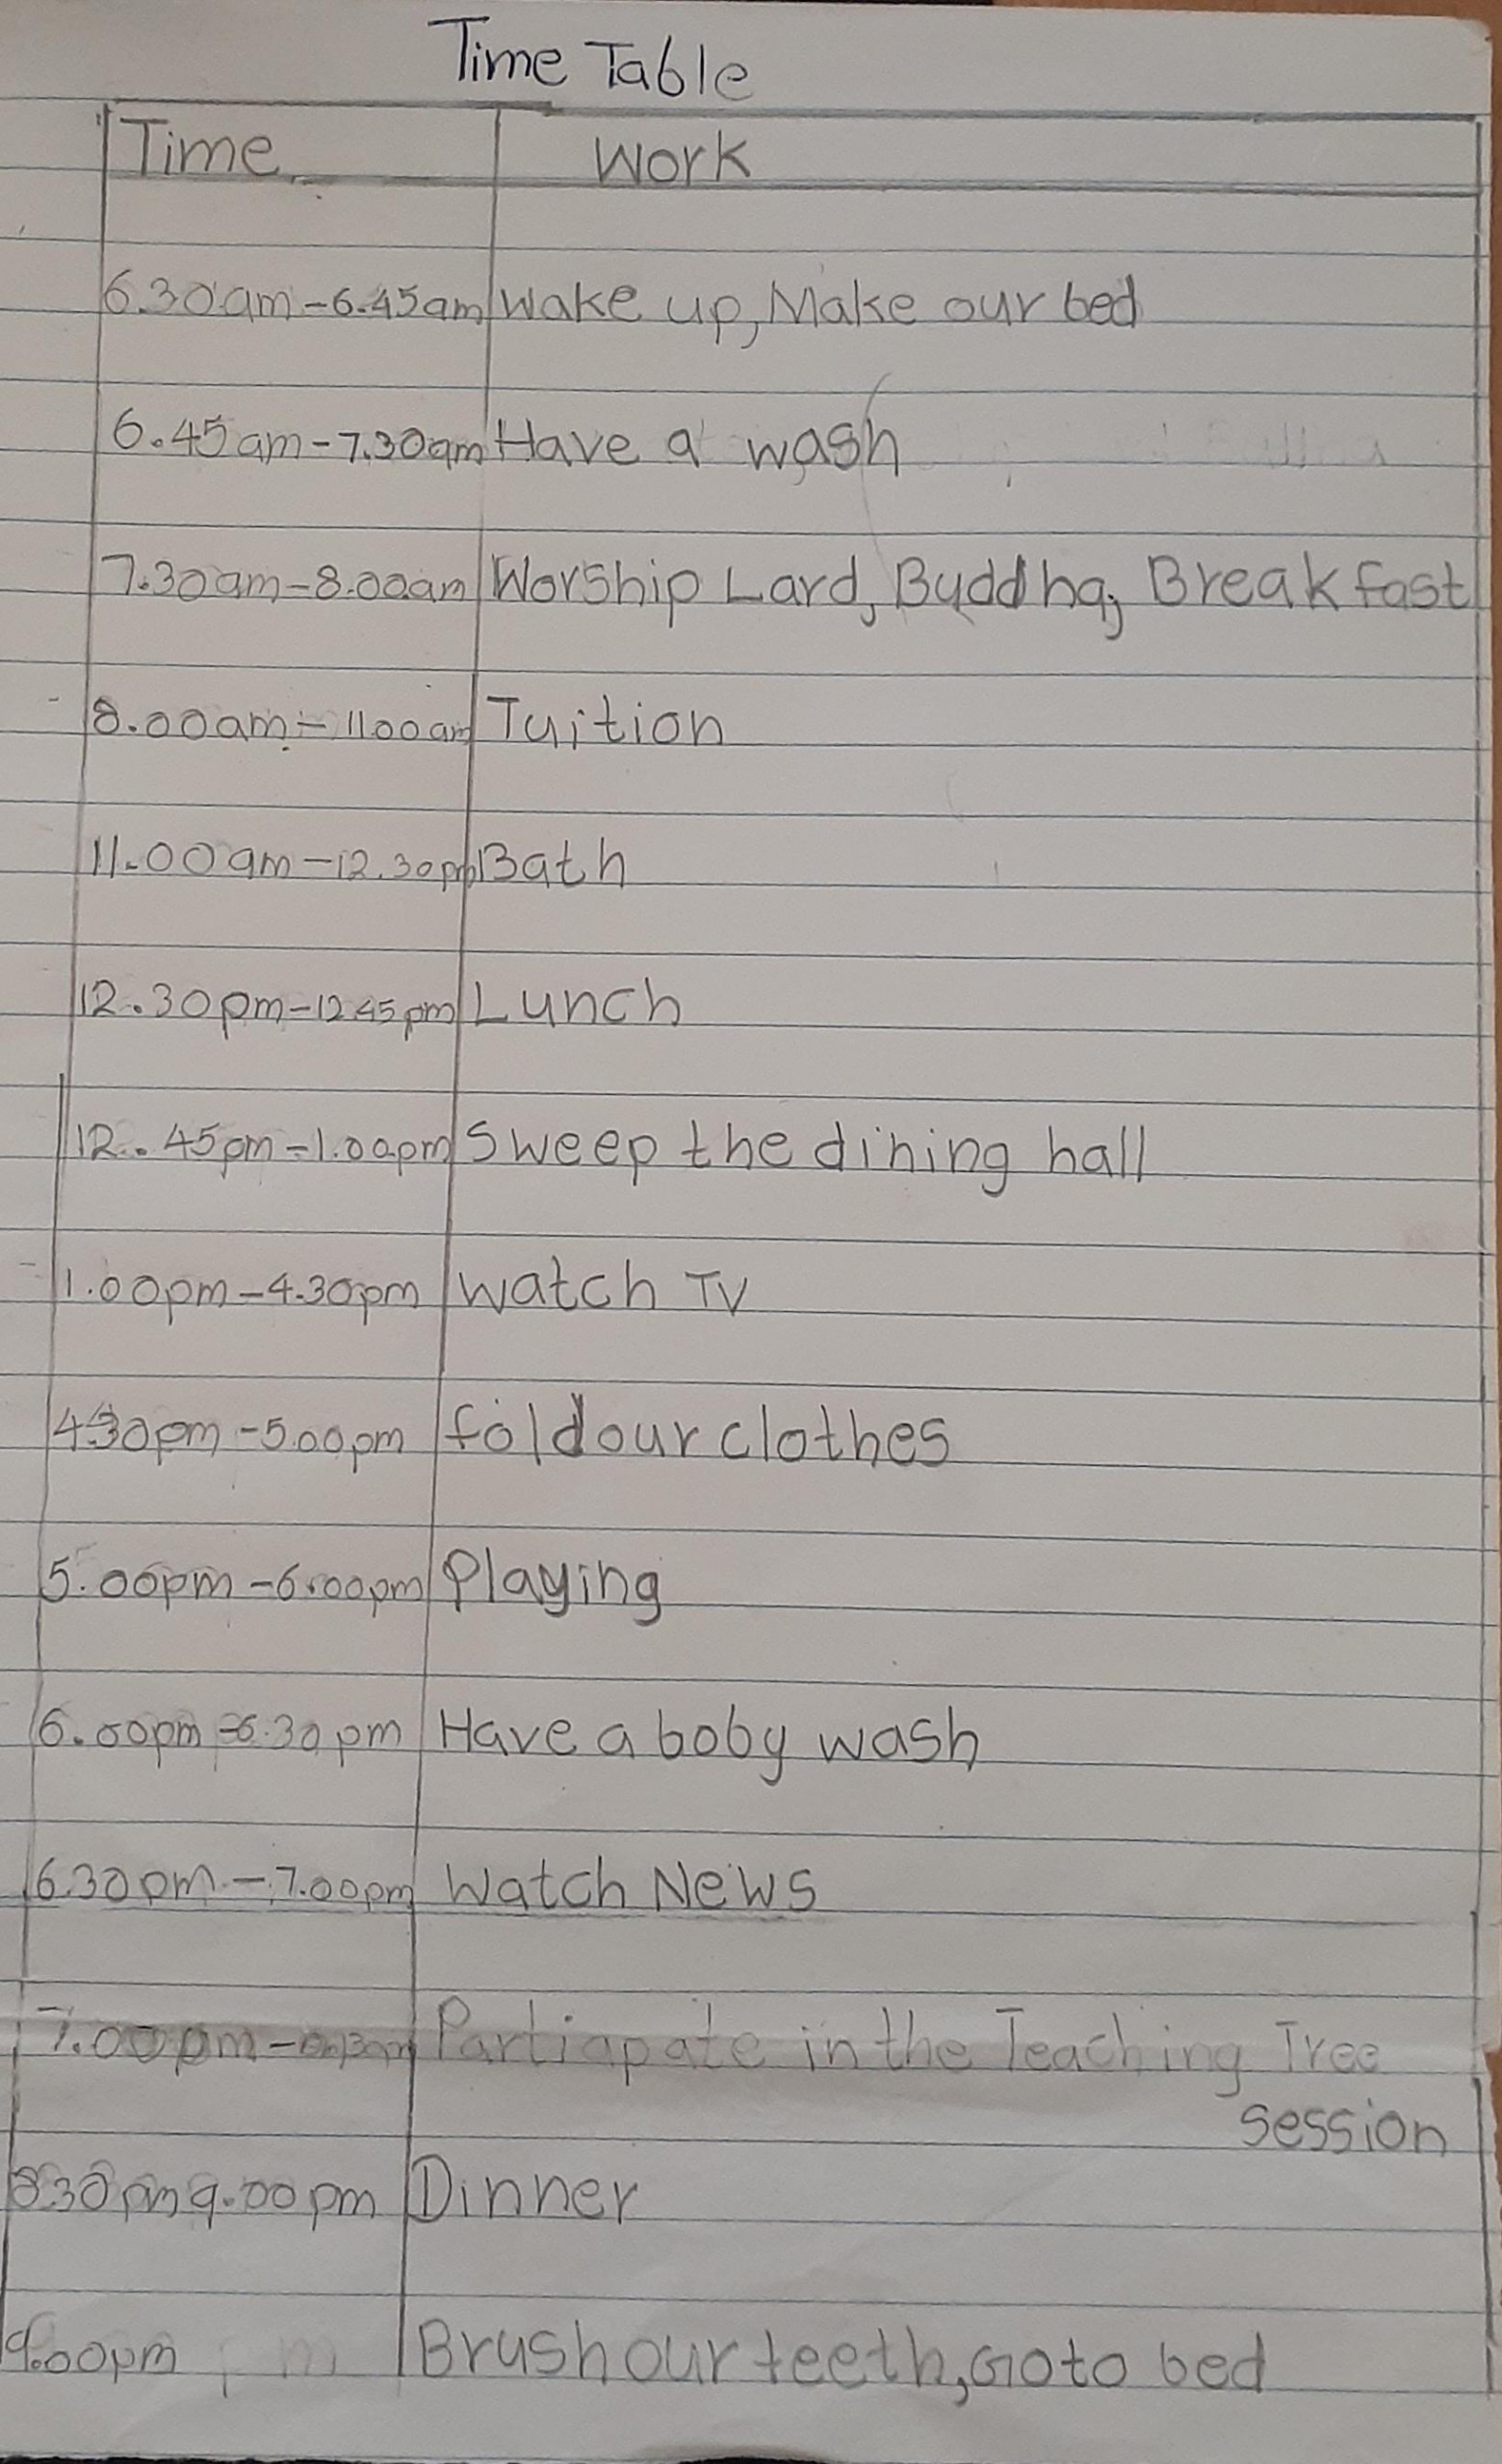 Time Table
Time Work
6.30am-6.45am Wake up, Make our bed
6.45am-7.30am Have a wash
7.30am-8.00am Worship Lard, Buddha, Breakfast
8.00am-11.00am Tuition
11.00am-12.30pm Bath
12.30pm-12.45pm Lunch
12.45pm-1.00pm Sweep the dining hall
1.00pm-4.30pm Watch TV
4.30pm-5.00pm fold our clothes
5.00pm-6.00pm Playing
6.00pm-6.30pm Have a boby wash
6.30pm-7.00pm Watch News
7.00pm- Partiapate in the Teaching Tree
session
8.30pm 9.00pm Dinner
9.00pm Brush our teeth, Go to bed